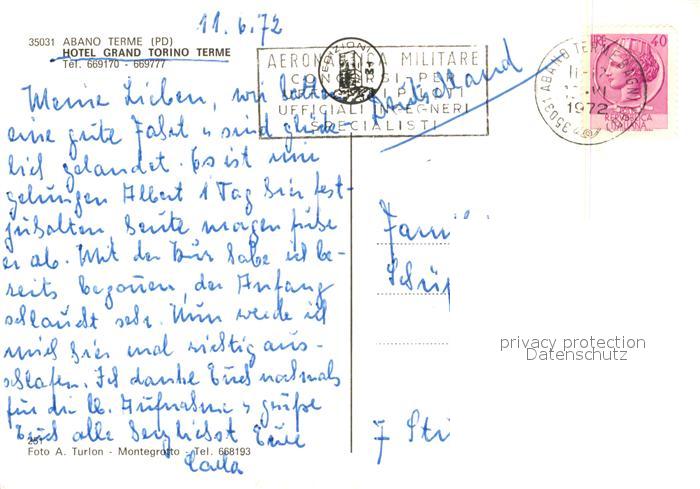 11.6.72
35031 ABANO TERME (PD)
HOTEL GRAND TORINO TERME
Tel. 669170 - 669777
Meine Lieben, wir hatten
eine gute Fahrt u sind glück
lich gelandet. Es ist mir
gelungen Albert 1 Tag hier fest-
zuhalten heute morgen fuhr
er ab. Mit der Kur habe ich be-
reits begonnen, der Anfang
schlaucht sehr. Nun werde ich
mich hier mal richtig aus-
schlafen. Ich danke Euch nochmals
für die lb. Aufnahme u grüße
Euch alle herzlichst Eure
Carla
Foto A. Turlon - Montegrotto - Tel. 668193
AERONAUTICA MILITARE
CONCORSI PER
UFFICIALI INGEGNERI
SPECIALISTI
Deutschland
35031 ABANO TERME
1972
40
REPVBBLICA
ITALIANA
Fami
Schü
7 Sti
privacy protection
Datenschutz